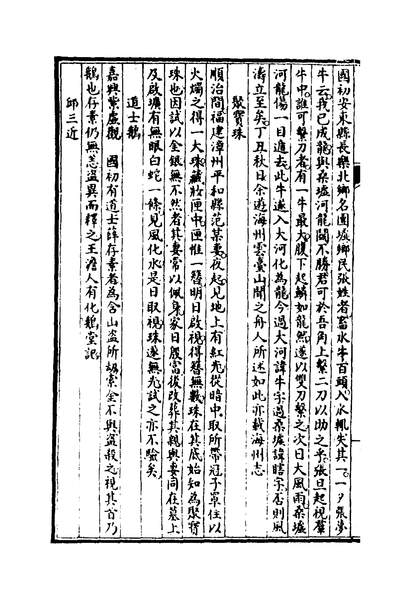 國初安東縣長樂北鄉名團墟鄉民張姓者畜水牛百頭入水輒失其一一夕張夢
牛云我已成龍與桑墟河龍鬬不勝君可於吾角上繫二刀以助之乎張旦起視羣
牛中誰可繫刀者有一牛最大腹下起鱗如龍然遂以雙刀繫之次日大風雨桑墟
河龍傷一目遁去此牛遂入大河化為龍今過大河諱牛字過桑墟諱瞎字否則風
濤立至矣丁丑秋日余遊海州雲臺山聞之舟人所述如此亦載海州志
聚寶珠
順治間福建漳州平和縣范某妻夜起見地上有紅光從暗中取所帶冠子罩住以
火燭之得一大珠藏妝匣中匣惟一簪明日啟視得簪無數珠在其底始知為聚寶
珠也因試以金銀無不然者其妻常以佩身家日履富後改葬其親與妻同在墓上
及啟壙有無眼白蛇一條見風化水是日取視珠遂無光試之亦不驗矣
道士鵝
嘉興紫虛觀 國初有道士薛存素者為含山盜所劫索金不與盜殺之視其首乃
鵝也存素仍無恙盜異而釋之王濟人有化鵝堂記
邱三近